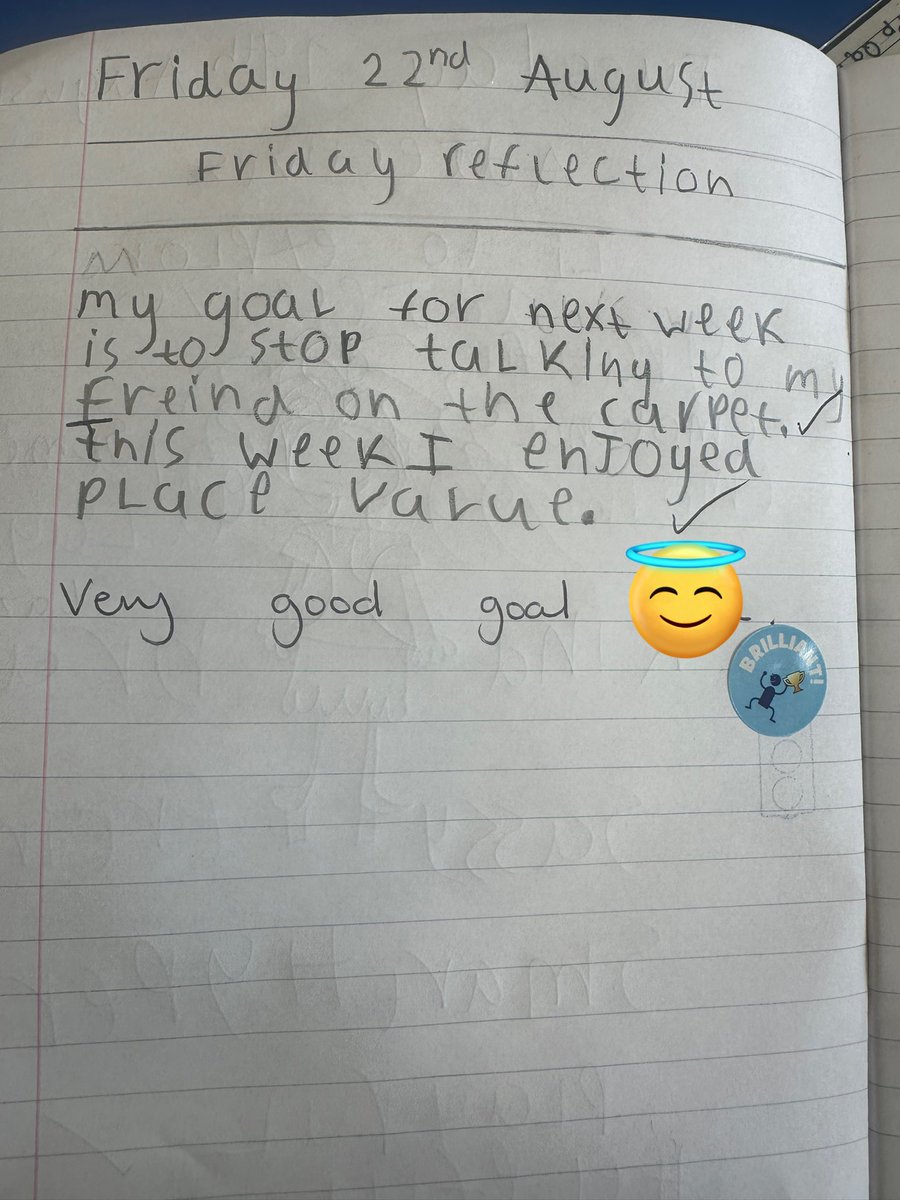 Friday 22nd August
Friday reflection
my goal for next week
is to stop talking to my
freind on the carpet.
this week I enjoyed
place varue.
Very good goal
BRILLIANT!